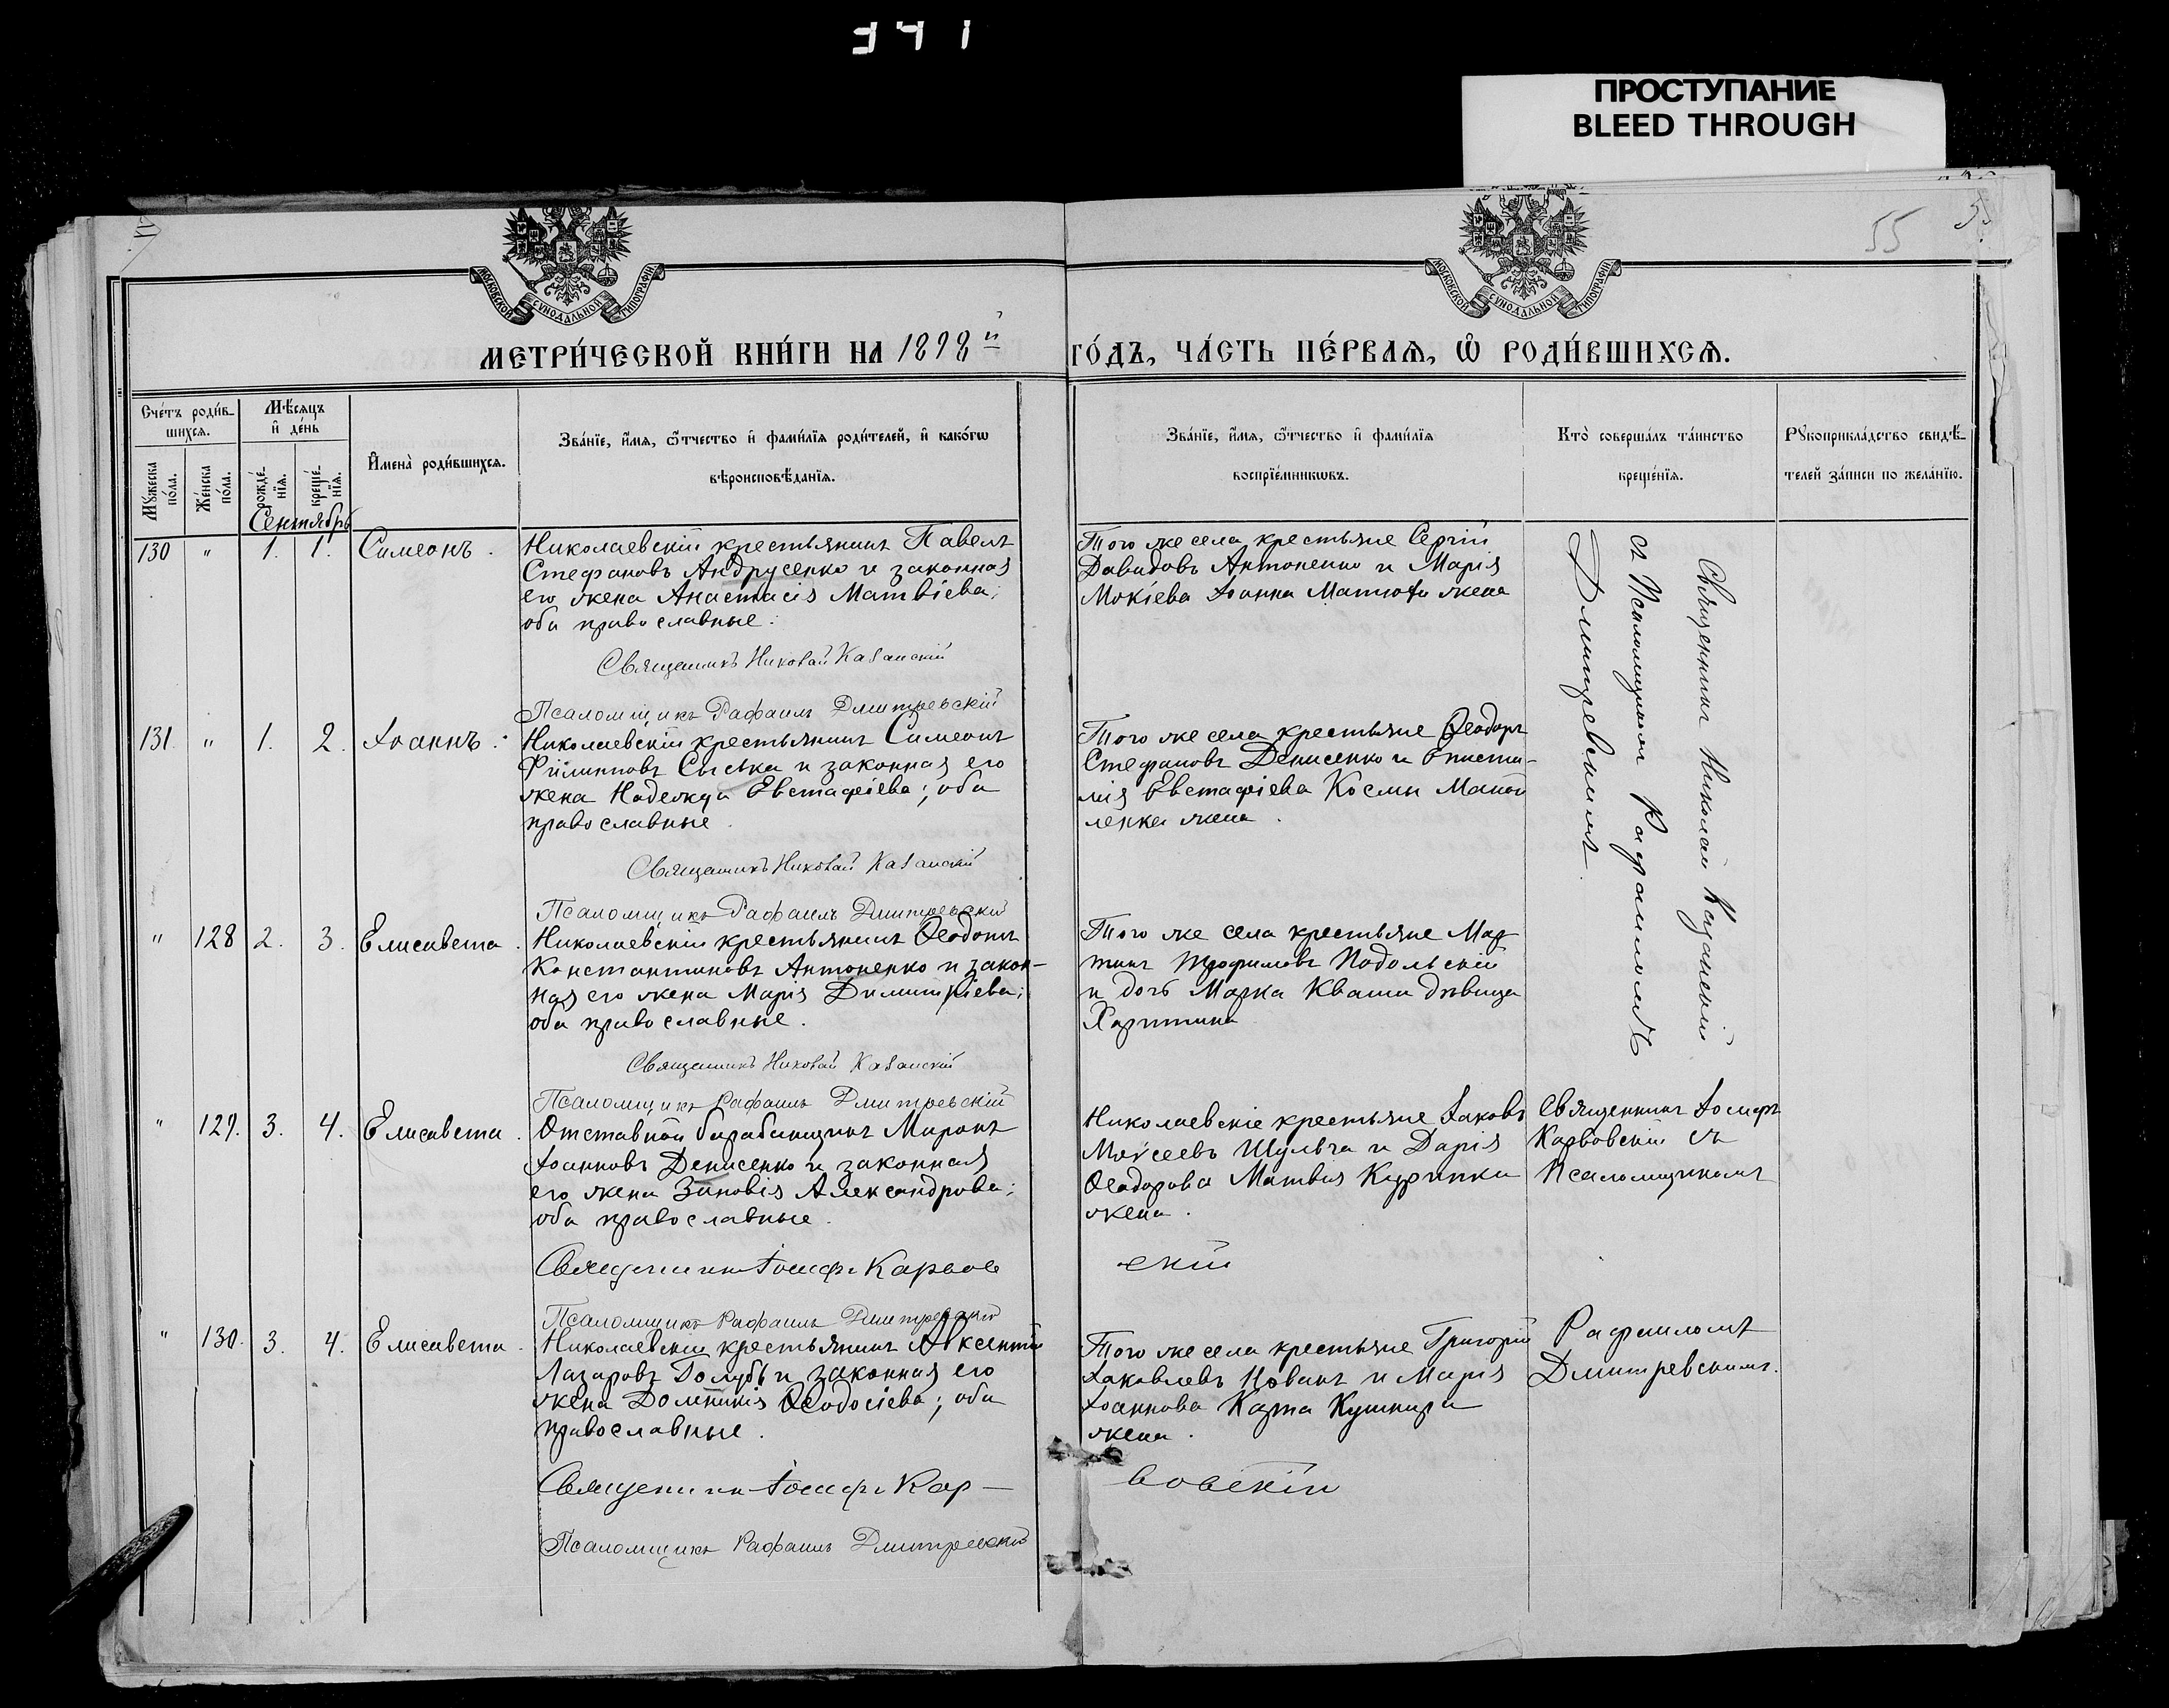 341
ПРОСТУПАНИЕ
BLEED THROUGH
55
МОСКОВСКОЙ СѴНОДАЛЬНОЙ ТИПОГРАФІИ
МОСКОВСКОЙ СѴНОДАЛЬНОЙ ТИПОГРАФІИ
МЕТРИ́ЧЕСКОЙ КНИ́ГИ НА 1898й ГО́ДЪ, ЧА́СТЬ ПЕ́РВАѦ, Ѽ РОДИ́ВШИХСѦ.
Сче́тъ роди́в-
шихсѧ.
Мѣ́сѧцъ
и҆ де́нь
Мꙋ́жеска по́ла.
Же́нска по́ла.
рожде́-
нїѧ.
креще́-
нїѧ.
И҆мена̀ роди́вшихсѧ.
Зва́нїе, и҆́мѧ, ѻ҆́тчество и҆ фами́лїѧ роди́телей, и҆ како́гѡ
вѣроисповѣ́данїѧ.
Зва́нїе, и҆́мѧ, ѻ҆́тчество и҆ фами́лїѧ
воспрїе́мникѡвъ.
Кто̀ соверша́лъ та́инство
креще́нїѧ.
Рꙋкоприкла́дство свидѣ́-
телей за́писи по жела́нїю.
Сентябрь
130 " 1. 1. Симеонъ.
Николаевскій крестьянинъ Павелъ
Стефановъ Андрусенко и законная
его жена Анастасія Матвіева;
оба православные.
Священникъ Николай Казанскій
Псаломщикъ Рафаилъ Дмитревскій
Того же села крестьяне Сергій
Давидовъ Антоненко и Марія
Мокіева Іоанна жена
Священникъ Николай Казанскій
съ Псаломщикомъ Рафаиломъ
Дмитревскимъ
131. " 1. 2. Іоаннъ.
Николаевскій крестьянинъ Симеонъ
Филипповъ Сыська и законная его
жена Надежда Евстафіева; оба
православные.
Священникъ Николай Казанскій
Псаломщикъ Рафаилъ Дмитревскій
Того же села крестьяне Ѳеодоръ
Стефановъ Денисенко и Еписти-
мія Евстафіева Космы Маной
ленка жена.
" 128 2. 3. Елисавета.
Николаевскій крестьянинъ Ѳеодотъ
Константиновъ Антоненко и закон-
ная его жена Марія Димитріева;
оба православные.
Священникъ Николай Казанскій
Псаломщикъ Рафаилъ Дмитревскій
Того же села крестьяне Мар
тинъ Трофимовъ Подольскій
и дочь Марка Кваши дѣвица
Харитина
" 129. 3. 4. Елисавета.
Отставной барабанщикъ Миронъ
Іоанновъ Денисенко и законная
его жена Зиновія Александрова;
оба православные.
Священник Іосифъ Карвовскій
Псаломщикъ Рафаилъ Дмитревскій
Николаевскіе крестьяне Іаковъ
Моѵсеевъ Шульга и Дарія
Ѳеодорова Матвія Курипки
жена.
Священникъ Іосифъ
Карвовскій съ
Псаломщикомъ
" 130. 3. 4. Елисавета.
Николаевскій крестьянинъ Авксентій
Лазаровъ Голубъ и законная его
жена Домникія Ѳеодосіева; оба
православные.
Священник Іосифъ Кар-вовскій
Псаломщикъ Рафаилъ Дмитревскій
Того же села крестьяне Григорій
Іаковлевъ Ивано и Марія
Іоаннова Карпа Кушнира
жена.
Рафаиломъ
Дмитревскимъ.